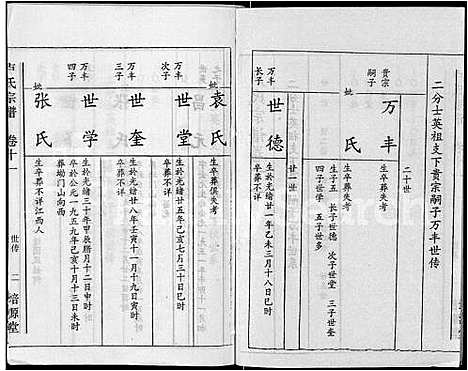 二分士英祖支下贵宗嗣子万丰世传
二十世
贵宗
嗣子
万丰
生卒葬失考
妣
氏
生卒葬失考
生子五 长子世德 次子世堂 三子世奎
四子世学 五子世多
廿一世
万丰
长子
世德
生於光绪廿一年乙未三月十八日巳时
卒葬不详
妣
袁氏
生卒葬俱失考
万丰
次子
世堂
生於光绪廿五年己亥七月三十日巳时
卒葬不详
万丰
三子
世奎
生於光绪廿八年壬寅十一月十九日寅时
卒葬不详
万丰
四子
世学
生於光绪三十年甲辰腊月十二日申时
卒於公元一九五九年己亥十月十三日未时
葬坳门山向西
妣
张氏
生卒葬不详江西人
氏宗谱
卷十一
世传
二
培源堂